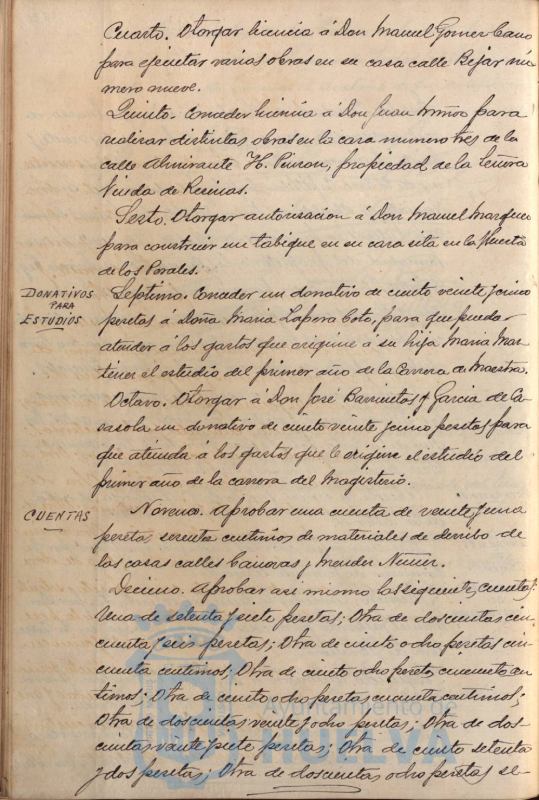 Cuarto. Otorgar licencia á Don Manuel Gomez Cano
para ejecutar varias obras en su casa calle Bejar nú-
mero nueve.
Quinto. Conceder licencia á Don Juan para
realizar distintas obras en la casa numero tres de la
calle Almirante H. Pinzon, propiedad de la Señora
Viuda de Recinas.
Sexto. Otorgar autorisacion á Don Manuel Marquez
para construir un tabique en su casa sita en la Huerta
de los Rosales.
DONATIVOS
PARA
ESTUDIOS
Septimo. Conceder un donativo de ciento veinte y cinco
pesetas á Doña Maria Lapera Coto, para que pueda
atender á los gastos que origine á su hija Maria Mar-
tener el estudio del primer año de la Carrera de Maestra.
Octavo. Otorgar á Don José Barrientos y Garcia de Ca-
rasola un donativo de ciento veinte y cinco pesetas para
que atienda á los gastos que le origine el estudio del
primer año de la carrera del Magisterio.
CUENTAS
Noveno. Aprobar una cuenta de veinte y una
pesetas sesenta centimos de materiales de derribo de
las casas calles Canovas y Mendez Nuñez.
Decimo. Aprobar asi mismo las siguientes cuentas:
Una de setenta y siete pesetas; Otra de doscientas cin-
cuenta y seis pesetas; Otra de ciento ocho pesetas cin-
cuenta centimos; Otra de ciento ocho pesetas cincuenta cen-
timos; Otra de ciento ocho pesetas cincuenta centimos;
Otra de doscientas veinte y ocho pesetas; Otra de dos
cientas veinte y siete pesetas; Otra de ciento setenta
y dos pesetas; Otra de doscientas ocho pesetas se-
Ayuntamiento de
HUELVA